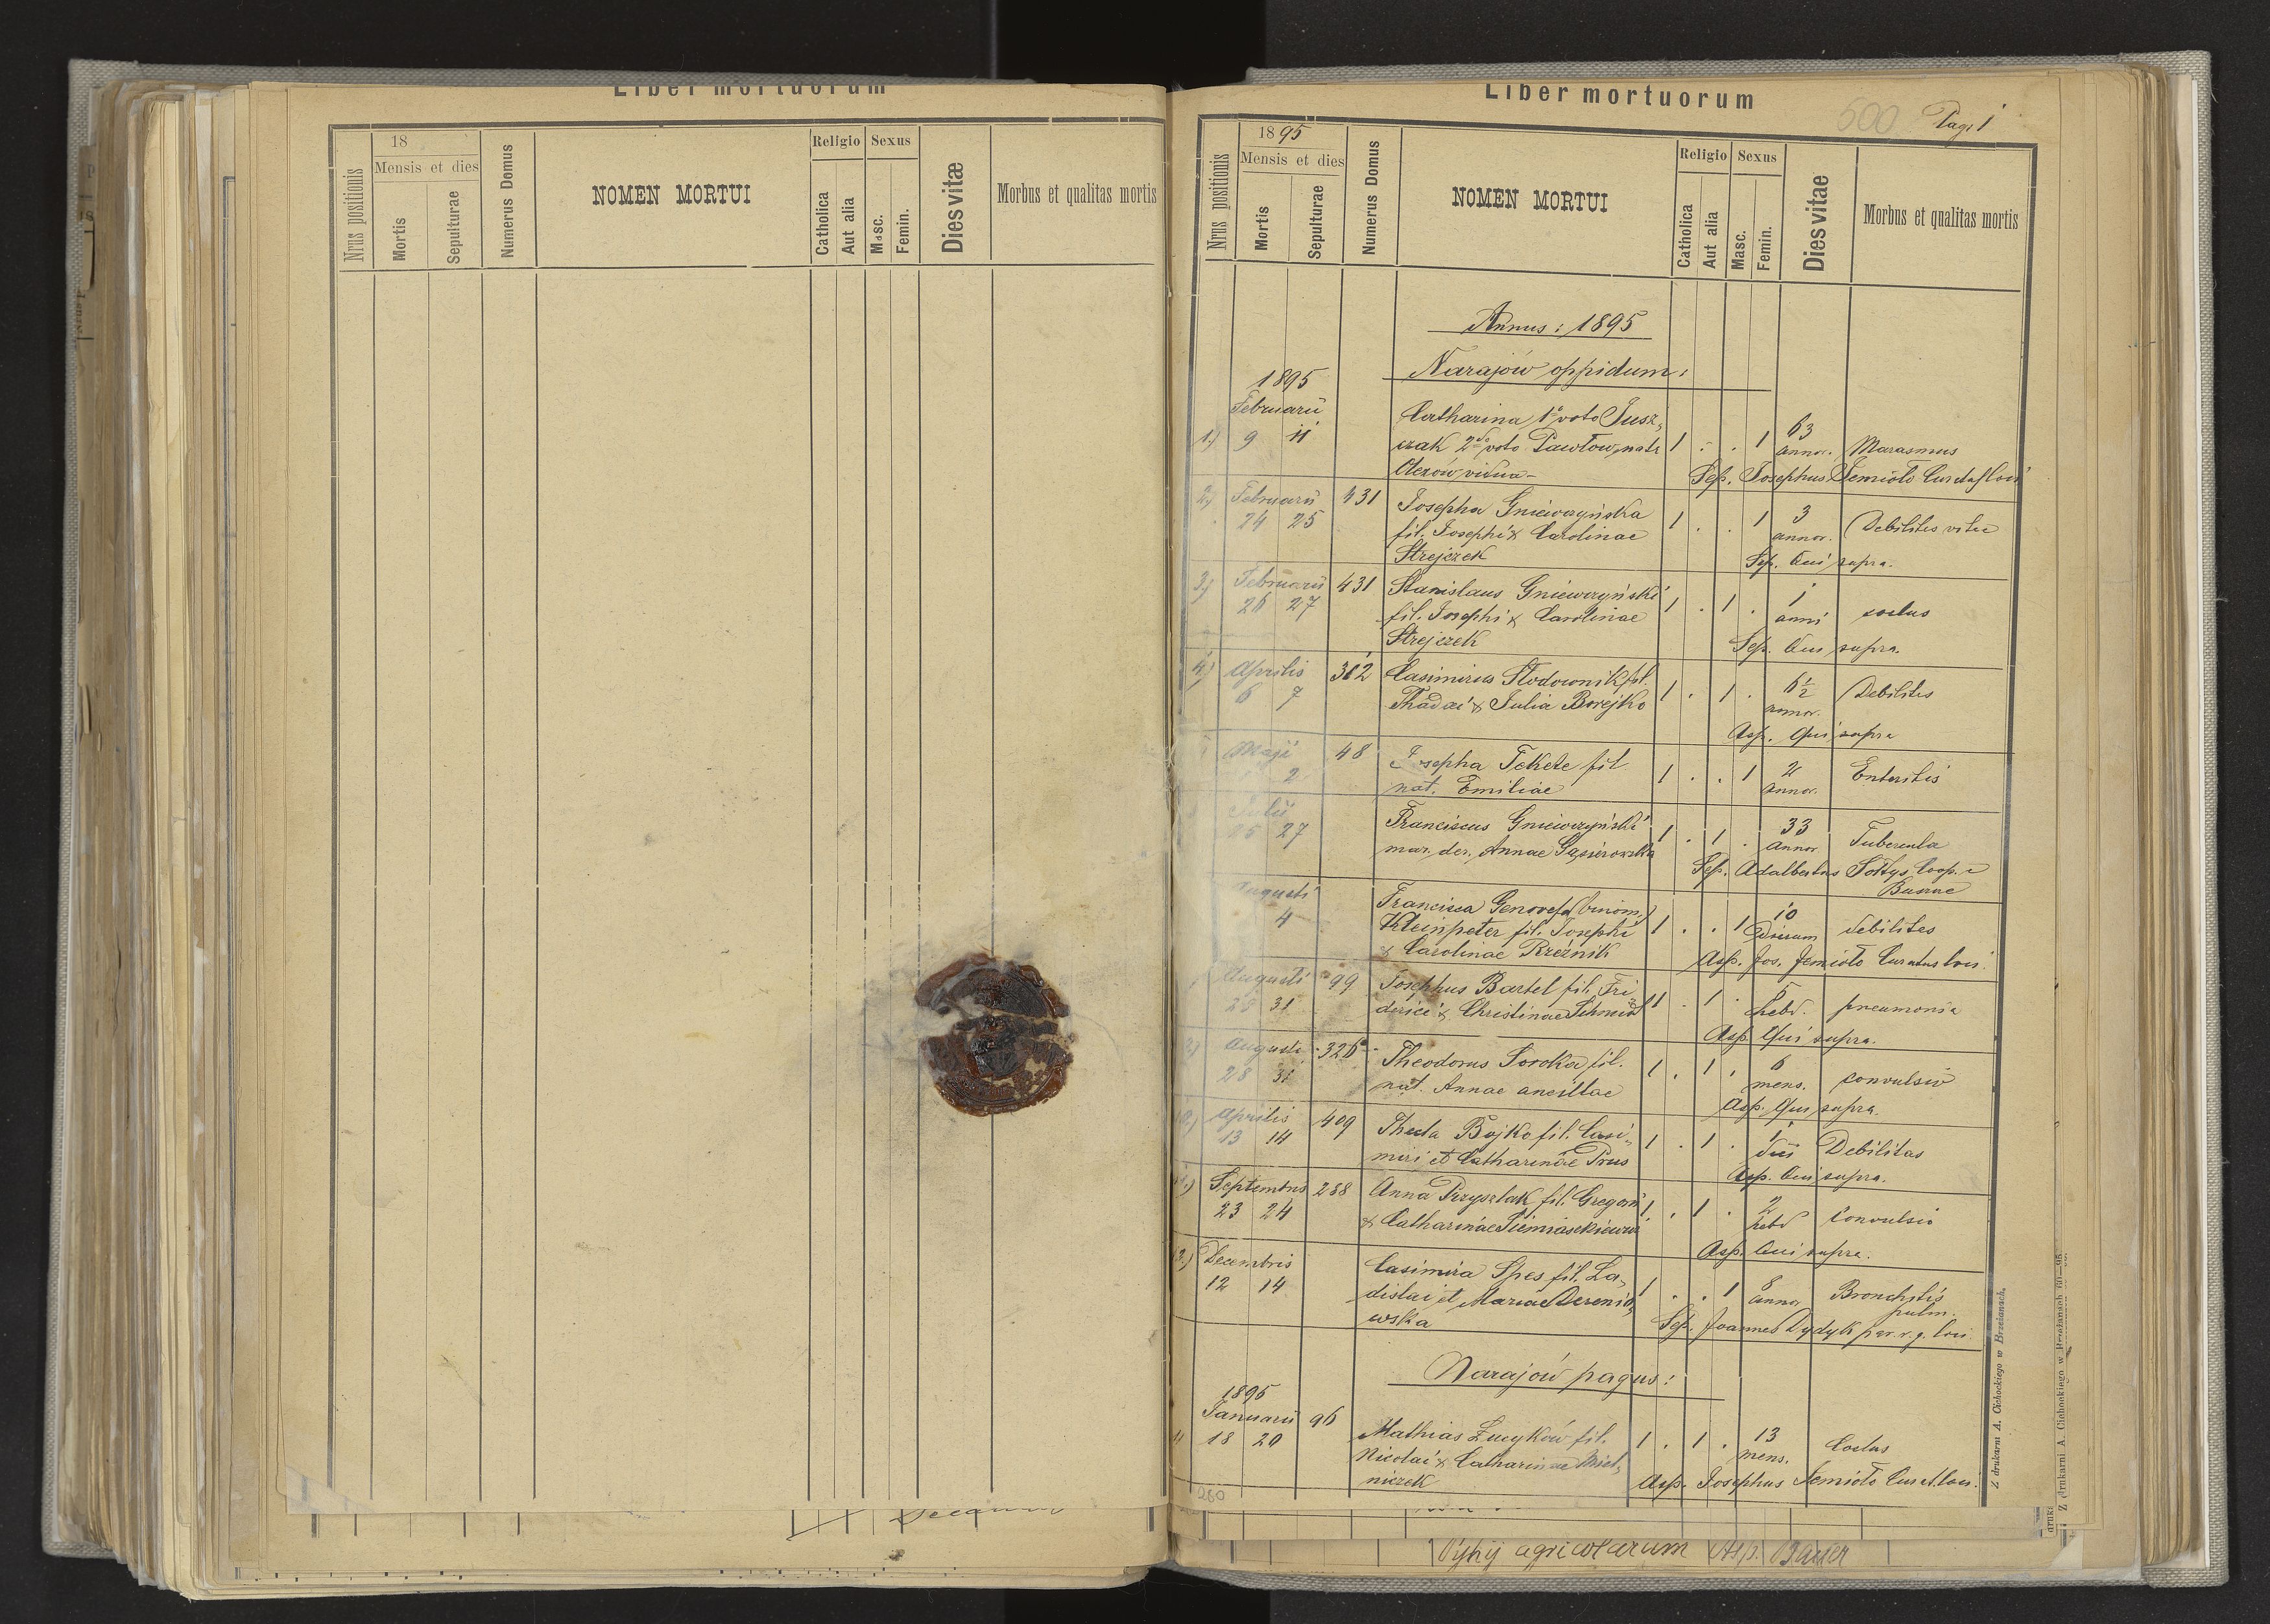 Liber mortuorum
Nrus positionis
18
Mensis et dies
Mortis
Sepulturae
Numerus Domus
NOMEN MORTUI
Religio
Catholica
Aut alia
Sexus
Masc.
Femin.
Dies vitæ
Morbus et qualitas mortis
Liber mortuorum
500 Pag. 1
Nrus positionis
1895
Mensis et dies
Mortis
Sepulturae
Numerus Domus
NOMEN MORTUI
Religio
Catholica
Aut alia
Sexus
Masc.
Femin.
Dies vitae
Morbus et qualitas mortis
Annus: 1895
Narajów oppidum:
1895
Februarii
1.) 9 11
Catharina 1o voto Jusz,
czak 2do voto Pawłow, nata
vidua
1 . . 1 63 annor. Marasmus
Sep. Josephus Jemioło Curatus loci
2.) Februarii 431
24 25
Josepha Gniewczyńska
fil. Josephi & Carolinae
Strejczek
1 . . 1 3 annor. Debilitas vitae
Sep. Qui supra.
3.) Februarii 431
26 27
Stanislaus Gniewczyński
fil. Josephi & Carolinae
Strejczek
1 . 1 . 1 anni
Sep. Qui supra.
4.) Aprilis 312
6 7
Casimirus Słodownik fil.
Thadaei & Julia Borejko
1 . 1 . 6 1/2 annor. Debilitas
Asp. Qui supra
Maji 48
2
Josepha Fekete fil
nat. Emiliae
1 . . 1 2 annor. Enteritis
Julii
25 27
Franciscus Gniewczyński
mar. der. Annae Gąsiorowska
1 . 1 . 33 annor Tubercula
Sep. Adalbertus Sołtys Coop.
Augusti
4
Francisca Genovefa (binom.)
Kleinpeter fil. Josephi
& Carolinae Rzeźnik
1 . . 1 10 dierum debilitas
Asp. Jos. Jemioło Curatus loci.
Augusti 99
28 31
Josephus Bartel fil. Fri
derici & Christinae Schmidt
1 . 1 . hebd. pneumonia
Asp. Qui supra.
9.) Augusti 326
28 31
Theodorus Soroka fil.
nat. Annae ancillae
1 . 1 . 6 mens. convulsio
Asp. Qui supra.
10.) Aprilis 409
13 14
Thecla Bojko fil. Casi,
miri et Catharinae Prus
1 . 1 . 1 diei Debilitas
Asp. Qui supra.
11.) Septembris 288
23 24
Anna Przyszlak fil. Gregorii
& Catharinae
1 . 1 . 2 hebd convulsio
Asp. Qui supra.
12.) Decembris
12 14
Casimira Spes fil. La,
dislai et Mariae Derenio,
wska
1 . . 1 8 annor Bronchitis
pulm.
Sep. Joannes Dydyk par. r. g. loci
Narajów pagus:
1895
Januarii 96
18 20
Mathias Łucyków fil.
Nicolai & Catharinae Miel,
niczek
1 . 1 . 13 mens.
Asp. Josephus Jemioło Curat. loci.
260
Z drukarni A. Cichockiego w Brzeżanach.
Z drukarni A. Cichockiego w Brzeżanach 60—95.
agricolarum Asp. Bauer